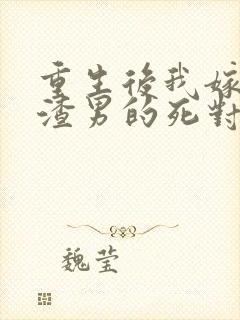 重生後我嫁
渣男的死對
魏莹